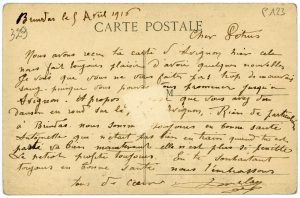 P 123
Brindas le 5 Août 1916
CARTE POSTALE
329
Cher
Nous avons reçu ta carte d'Avignon hier cela
nous fait toujours plaisir d'avoir quelques nouvelles
Je vois que vous ne vous faites pas trop de mauvais
sang puisque vous pouvez vous promener jusqu'en
Avignon. A propos que vous avez du
danser en rond sur le Avignon. Rien de particulier
à Brindas nous sommes toujours en bonne santé
qui n'etait pas bien en train quand tu es
parti va bien maintenant elle n'est plus si
Le petiot profite toujours. En te souhaitant
toujours en bonne santé nous t'embrassons
tous de cœur